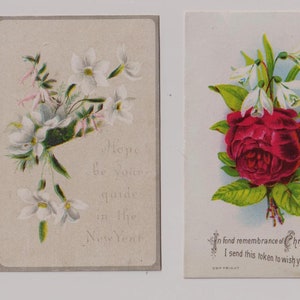 Hope
be your
guide
in the
New Year
In fond remembrance of Chr
I send this token to wish y